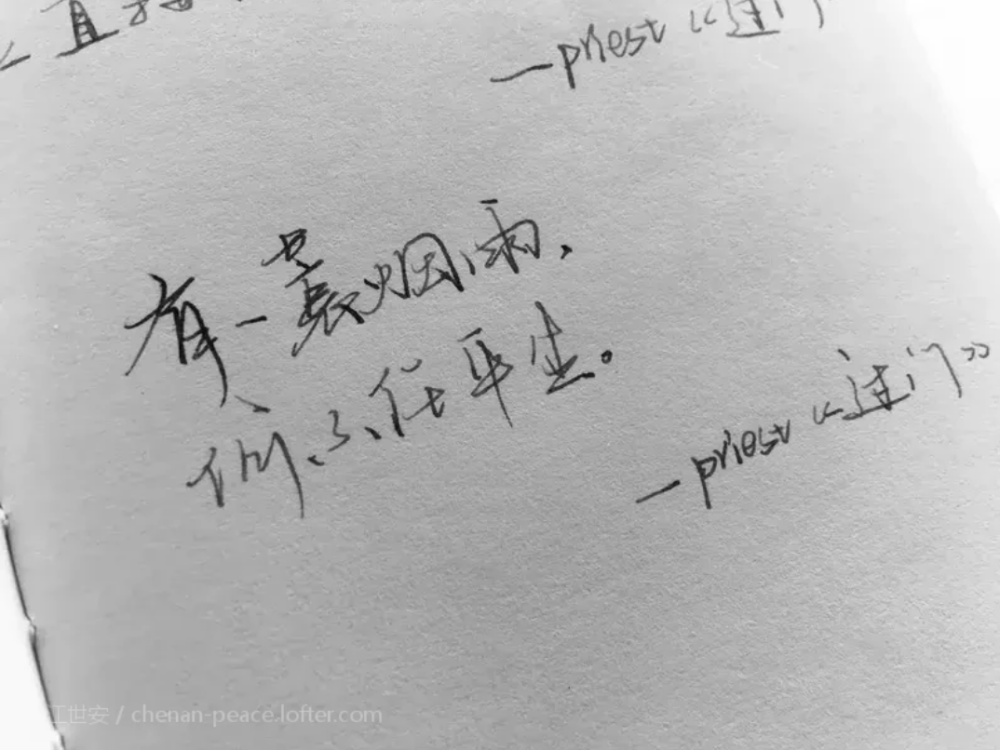 直接
—priest《过门
有一蓑烟雨，
任平生。
—priest《过门》
江世安 / chenan-peace.lofter.com